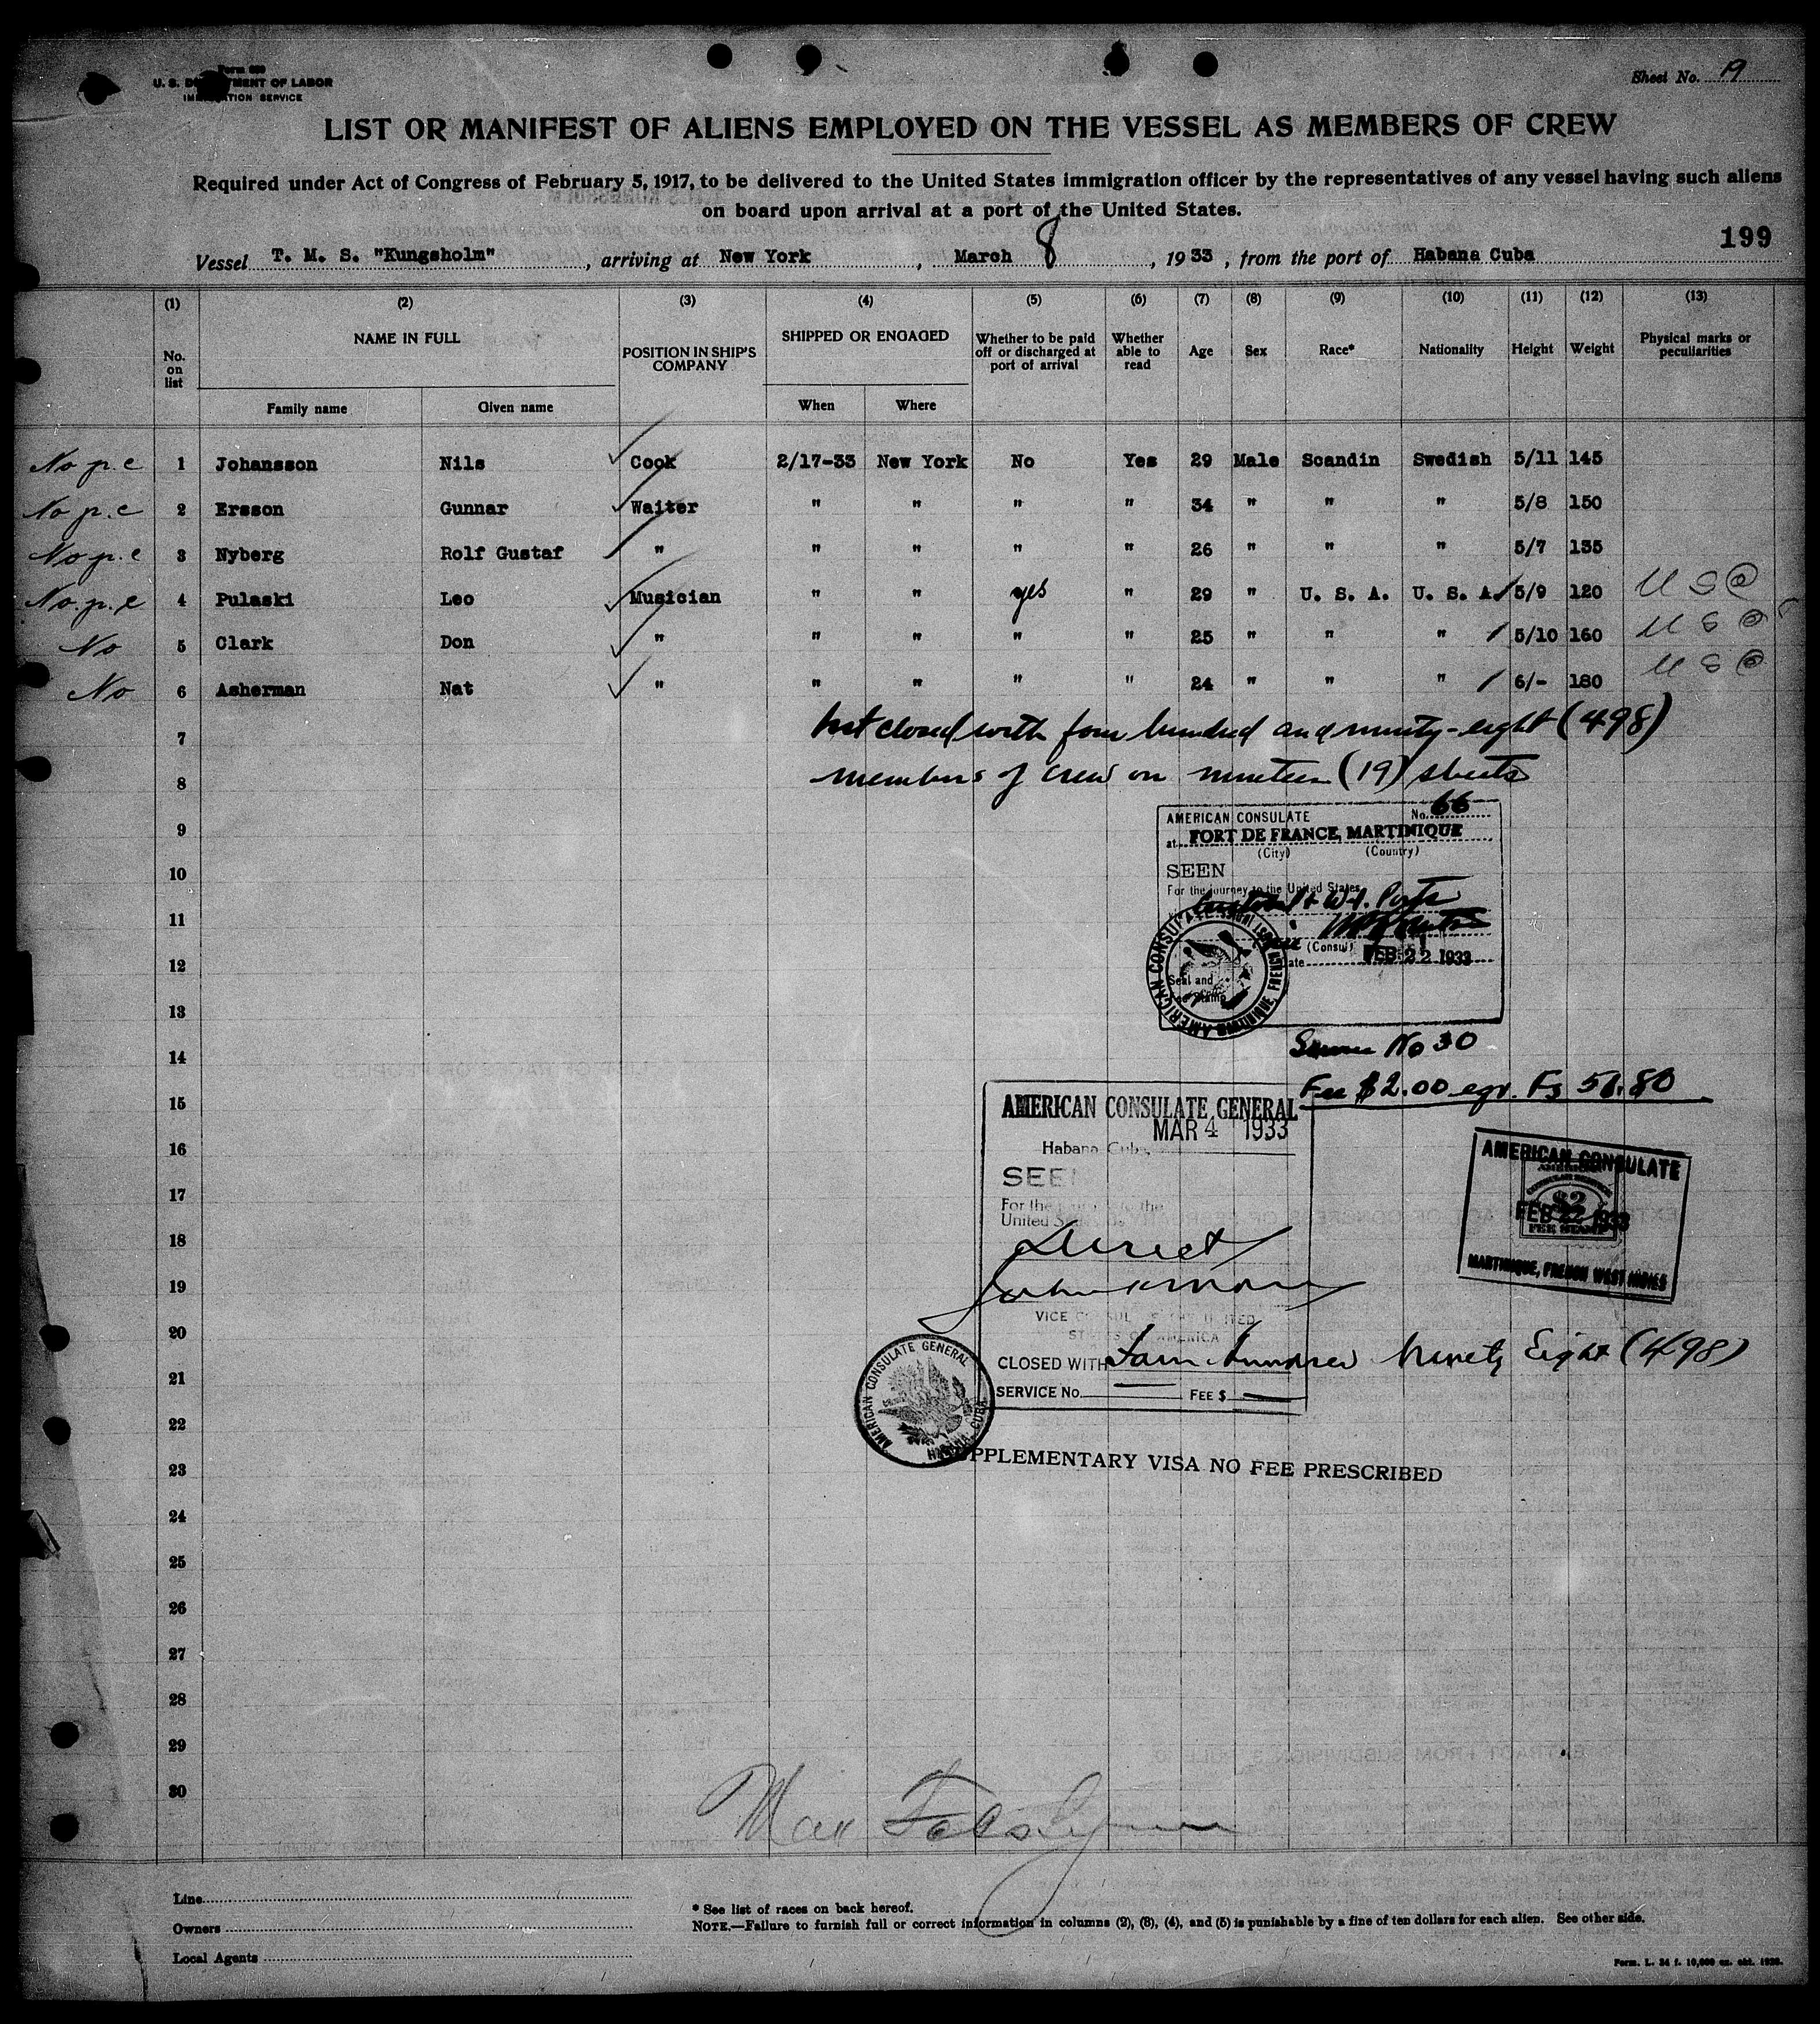 Form 680
U. S. DEPARTMENT OF LABOR
IMMIGRATION SERVICE
Sheet No. 19
LIST OR MANIFEST OF ALIENS EMPLOYED ON THE VESSEL AS MEMBERS OF CREW
Required under Act of Congress of February 5, 1917, to be delivered to the United States immigration officer by the representatives of any vessel having such aliens
on board upon arrival at a port of the United States.
199
Vessel T. M. S. "Kungsholm", arriving at New York, March 8, 1933, from the port of Habana Cuba
(1) (2) (3) (4) (5) (6) (7) (8) (9) (10) (11) (12) (13)
No. on list NAME IN FULL POSITION IN SHIP'S COMPANY SHIPPED OR ENGAGED Whether to be paid off or discharged at port of arrival Whether able to read Age Sex Race* Nationality Height Weight Physical marks or peculiarities
Family name Given name When Where
No p.c 1 Johansson Nils Cook 2/17-33 New York No Yes 29 Male Scandin Swedish 5/11 145
No p.c 2 Ersson Gunnar Waiter " " " " 34 " " " 5/8 150
No p.c 3 Nyberg Rolf Gustaf " " " " " 26 " " " 5/7 135
No. p. c 4 Pulaski Leo Musician " " yes " 29 " U. S. A. U. S. A. 5/9 120 U S C
No 5 Clark Don " " " " " 25 " " " 5/10 160 U S C
No 6 Asherman Nat " " " " " 24 " " " 6/- 180 U S C
7 List closed with four hundred and ninety-eight (498)
8 members of crew on nineteen (19) sheets
9
10
11
12
13
14
15
16
17
18
19
20
21
22
23
24
25
26
27
28
29
30
AMERICAN CONSULATE No. 66
at FORT DE FRANCE, MARTINIQUE
(City) (Country)
SEEN
For the journey to the United States
(Consul)
Date FEB 22 1933
Seal and
Fee Stamp
AMERICAN CONSULATE
Service No 30
Fee $2.00 eqv. Fs 51.80
AMERICAN CONSULATE GENERAL
MAR 4 1933
Habana Cuba,
SEEN
For the journey to the
United States
Direct
VICE CONSUL OF THE UNITED
STATES OF AMERICA
CLOSED WITH Four hundred Ninety Eight (498)
SERVICE No. FEE $
AMERICAN CONSULATE GENERAL
HABANA, CUBA
SUPPLEMENTARY VISA NO FEE PRESCRIBED
AMERICAN CONSULATE
$2
FEB 22 1933
FEE STAMP
MARTINIQUE, FRENCH WEST INDIES
Line
Owners
Local Agents
* See list of races on back hereof.
NOTE.—Failure to furnish full or correct information in columns (2), (3), (4), and (5) is punishable by a fine of ten dollars for each alien. See other side.
Form. L. 34 f. 10,000 ex. okt. 1930.